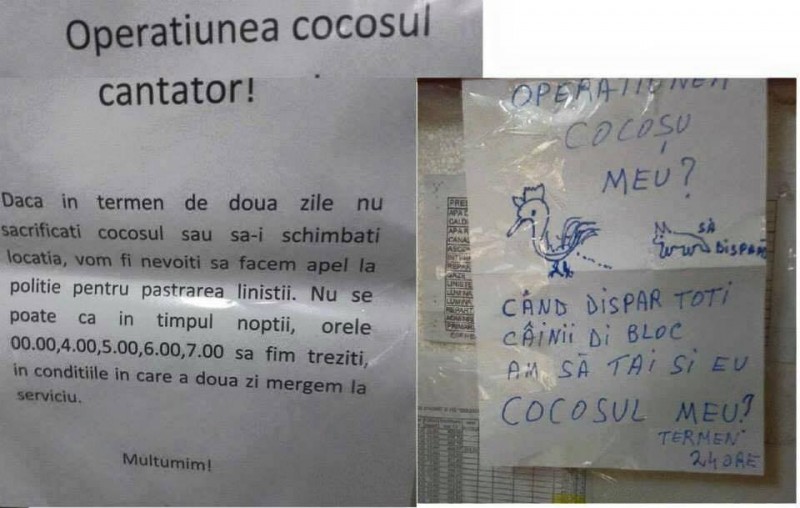 Operatiunea cocosul
cantator!
Daca in termen de doua zile nu
sacrificati cocosul sau sa-i schimbati
locatia, vom fi nevoiti sa facem apel la
politie pentru pastrarea linistii. Nu se
poate ca in timpul noptii, orele
00.00,4.00,5.00,6.00,7.00 sa fim treziti,
in conditiile in care a doua zi mergem la
serviciu.
Multumim!
OPERATIUNEA
COCOȘU
MEU?
SĂ
DISPAR
CÂND DISPAR TOTI
CÂINII DI BLOC
AM SĂ TAI SI EU
COCOSUL MEU?
TERMEN
24 ORE